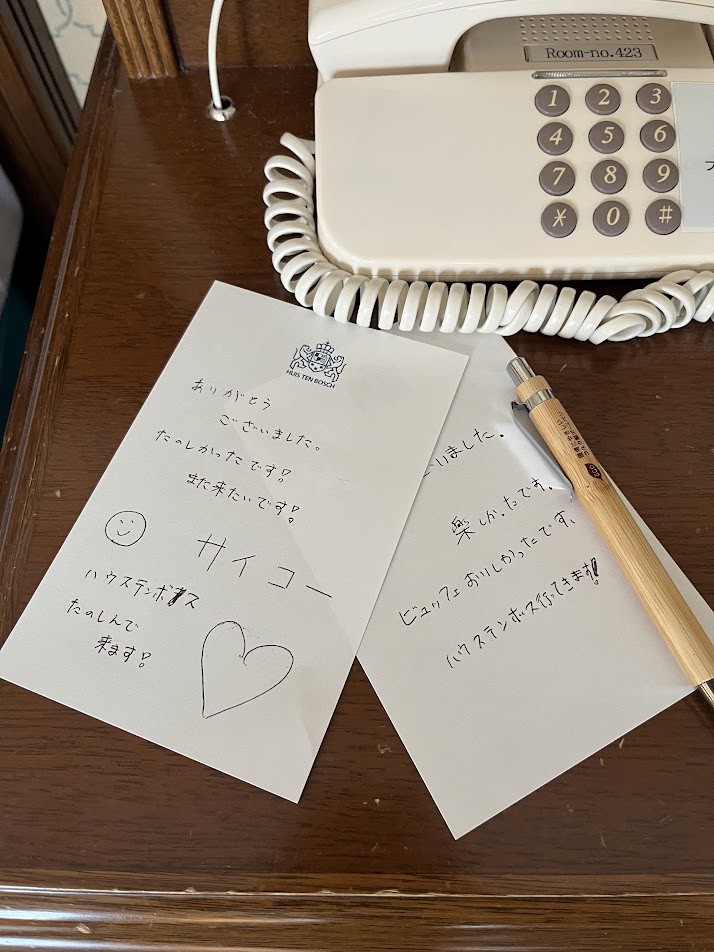 Room-no.423
1 2 3
4 5 6
7 8 9
* 0 #
HUIS TEN BOSCH
ありがとう
ございました。
たのしかったです!
また来たいです!
サイコー
ハウステンボス
たのしんで
来ます!
いました。
楽しかったです。
ビュッフェおいしかったです、
ハウステンボス行ってきます!